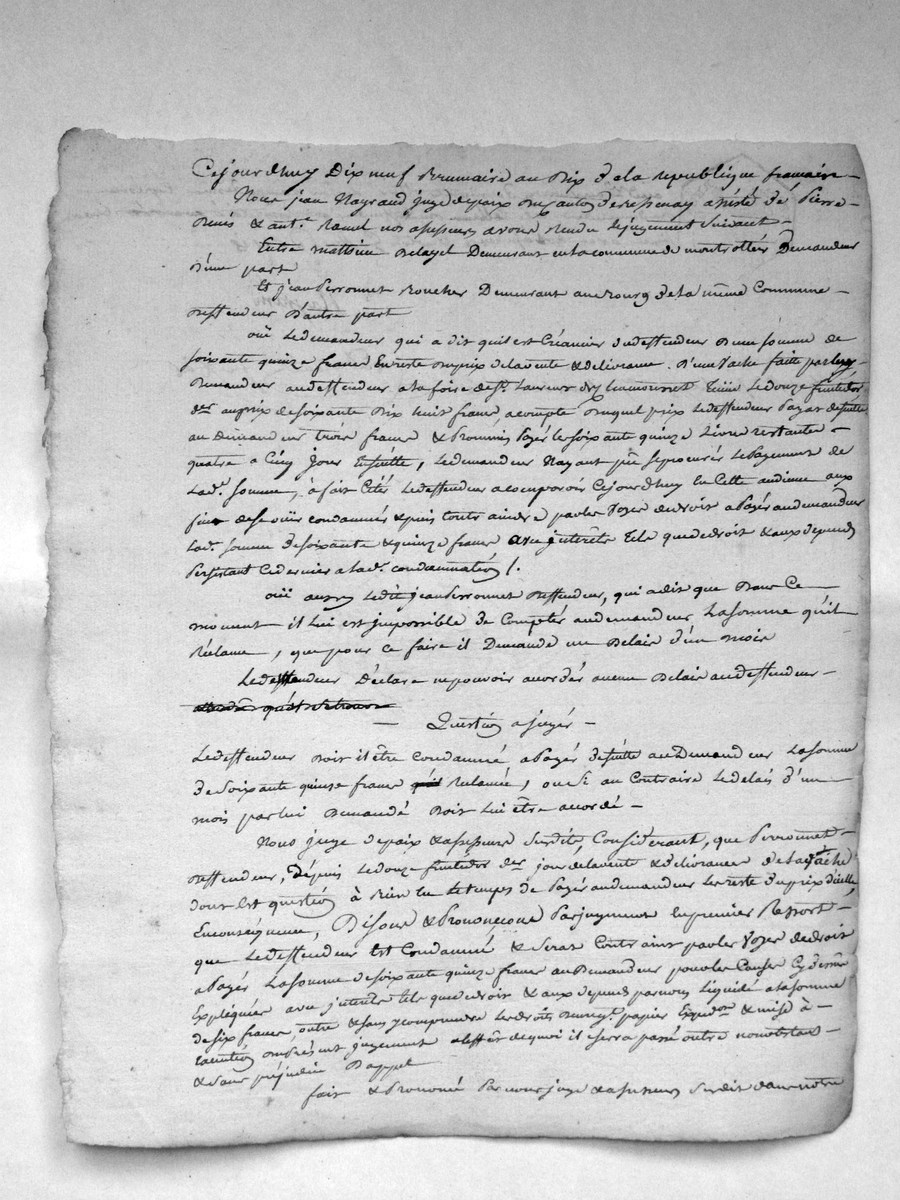 Cejourdhuy Dix neuf Brumaire an Dix de la republique francaise
Nous jean Nayrand juge de paix du canton de assisté de Pierre
Benés & ant.e Ramel nos assesseurs avons rendu le jugement suivant
Entre mathieu Delayel Demeurant en la commune de montrottier Demandeur
D'une part
Et jean Perronnet Rocher Demeurant au Bourg de la même Commune
Deffendeur D'autre part
oüi Le demandeur qui a dit quil est Créancier du deffendeur D'une somme de
soixante quinze francs En reste Du prix de la vente & delivrance D'une Vache faitte par luy
Demandeur au deffendeur a la foire de St. Laurent de Chamousset Tenüe Le douze fructidor
der. au prix de soixante Dix huit francs, acompte Duquel prix Le deffendeur Payat de suitte
au Demandeur trois francs & Promis Payé les soixante quinze Livres restantes
quatre a Cinq jours Ensuitte, Le demandeur Nayant pû se procurer Le Payement de
Lad.e somme, à fait Citér Le deffendeur a comparoir Cejourdhuy En Cette audience aux
fins de se voir condamnés & puis contraindre par les Voyes de droit a Payér au demandeur
Lad.e somme de soixante & quinze francs avec interêts Tels que de droit & aux depends
Persistant Ce dernier a lad.e condamnation /.
oüi aussy Ledit jean Perronnet Deffendeur, qui a dit que Dans Ce
moment il Lui est jmpossible de Comptér au demandeur La somme quil
Réclame, que pour ce faire il Demande un Delair d'un mois
Le deffendeur Déclare ne pouvoir accordér aucun Delair au deffendeur
Question a jugér
Le deffendeur Doit il être Condamné a Payér de suitte au Demandeur La somme
de Soixante quinze francs Réclamée, ou Si au Contraire Le delais d'un
mois par lui Demandé Doit Lui être accordé
Nous juge de paix & assesseurs Susdits, Considerant, que Perronnet
Deffendeur, Dépuis Le douze fructidor der. jour de la vente & délivrance De la Vache
dont Est question à Bien Eu Le temps de Payér au demandeur Le reste du prix d'icelle,
En conséquence, Disons & Prononcons Par jugement En premier Ressort
que Le deffendeur Est Condamné & Serat Contraint par les Voyes de droit
a Payér La somme de soixante quinze francs au Demandeur pour les Causes Cy dessus
Expliquées avec jnterets tels que de droit & aux depends par nous Liquidé a la somme
de six francs, outre & sans y comprendre Le droits d'enreg.t papier Expedon. & mise à
execution du présent jugement a l'effet de quoi il Sera passé outre nonobstant
& Sans préjudice D'appel
fait & Prononcé Par nous juge & assesseurs Susdit dans notre